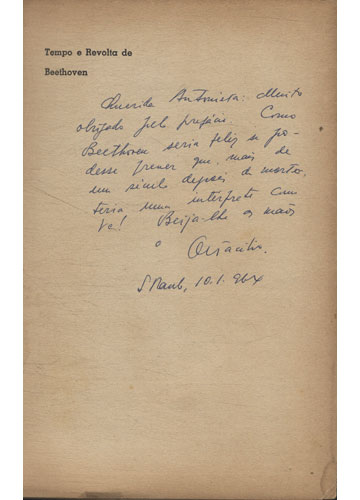 Tempo e Revolta de
Beethoven
Querida Antonieta: Muito
obrigado pelo prefácio. Como
Beethoven seria feliz se po-
desse prever que, mais de
um século depois de morto,
teria uma interprete com
Vê! Beija-lhe as mãos
o
S. Paulo, 10.1.964